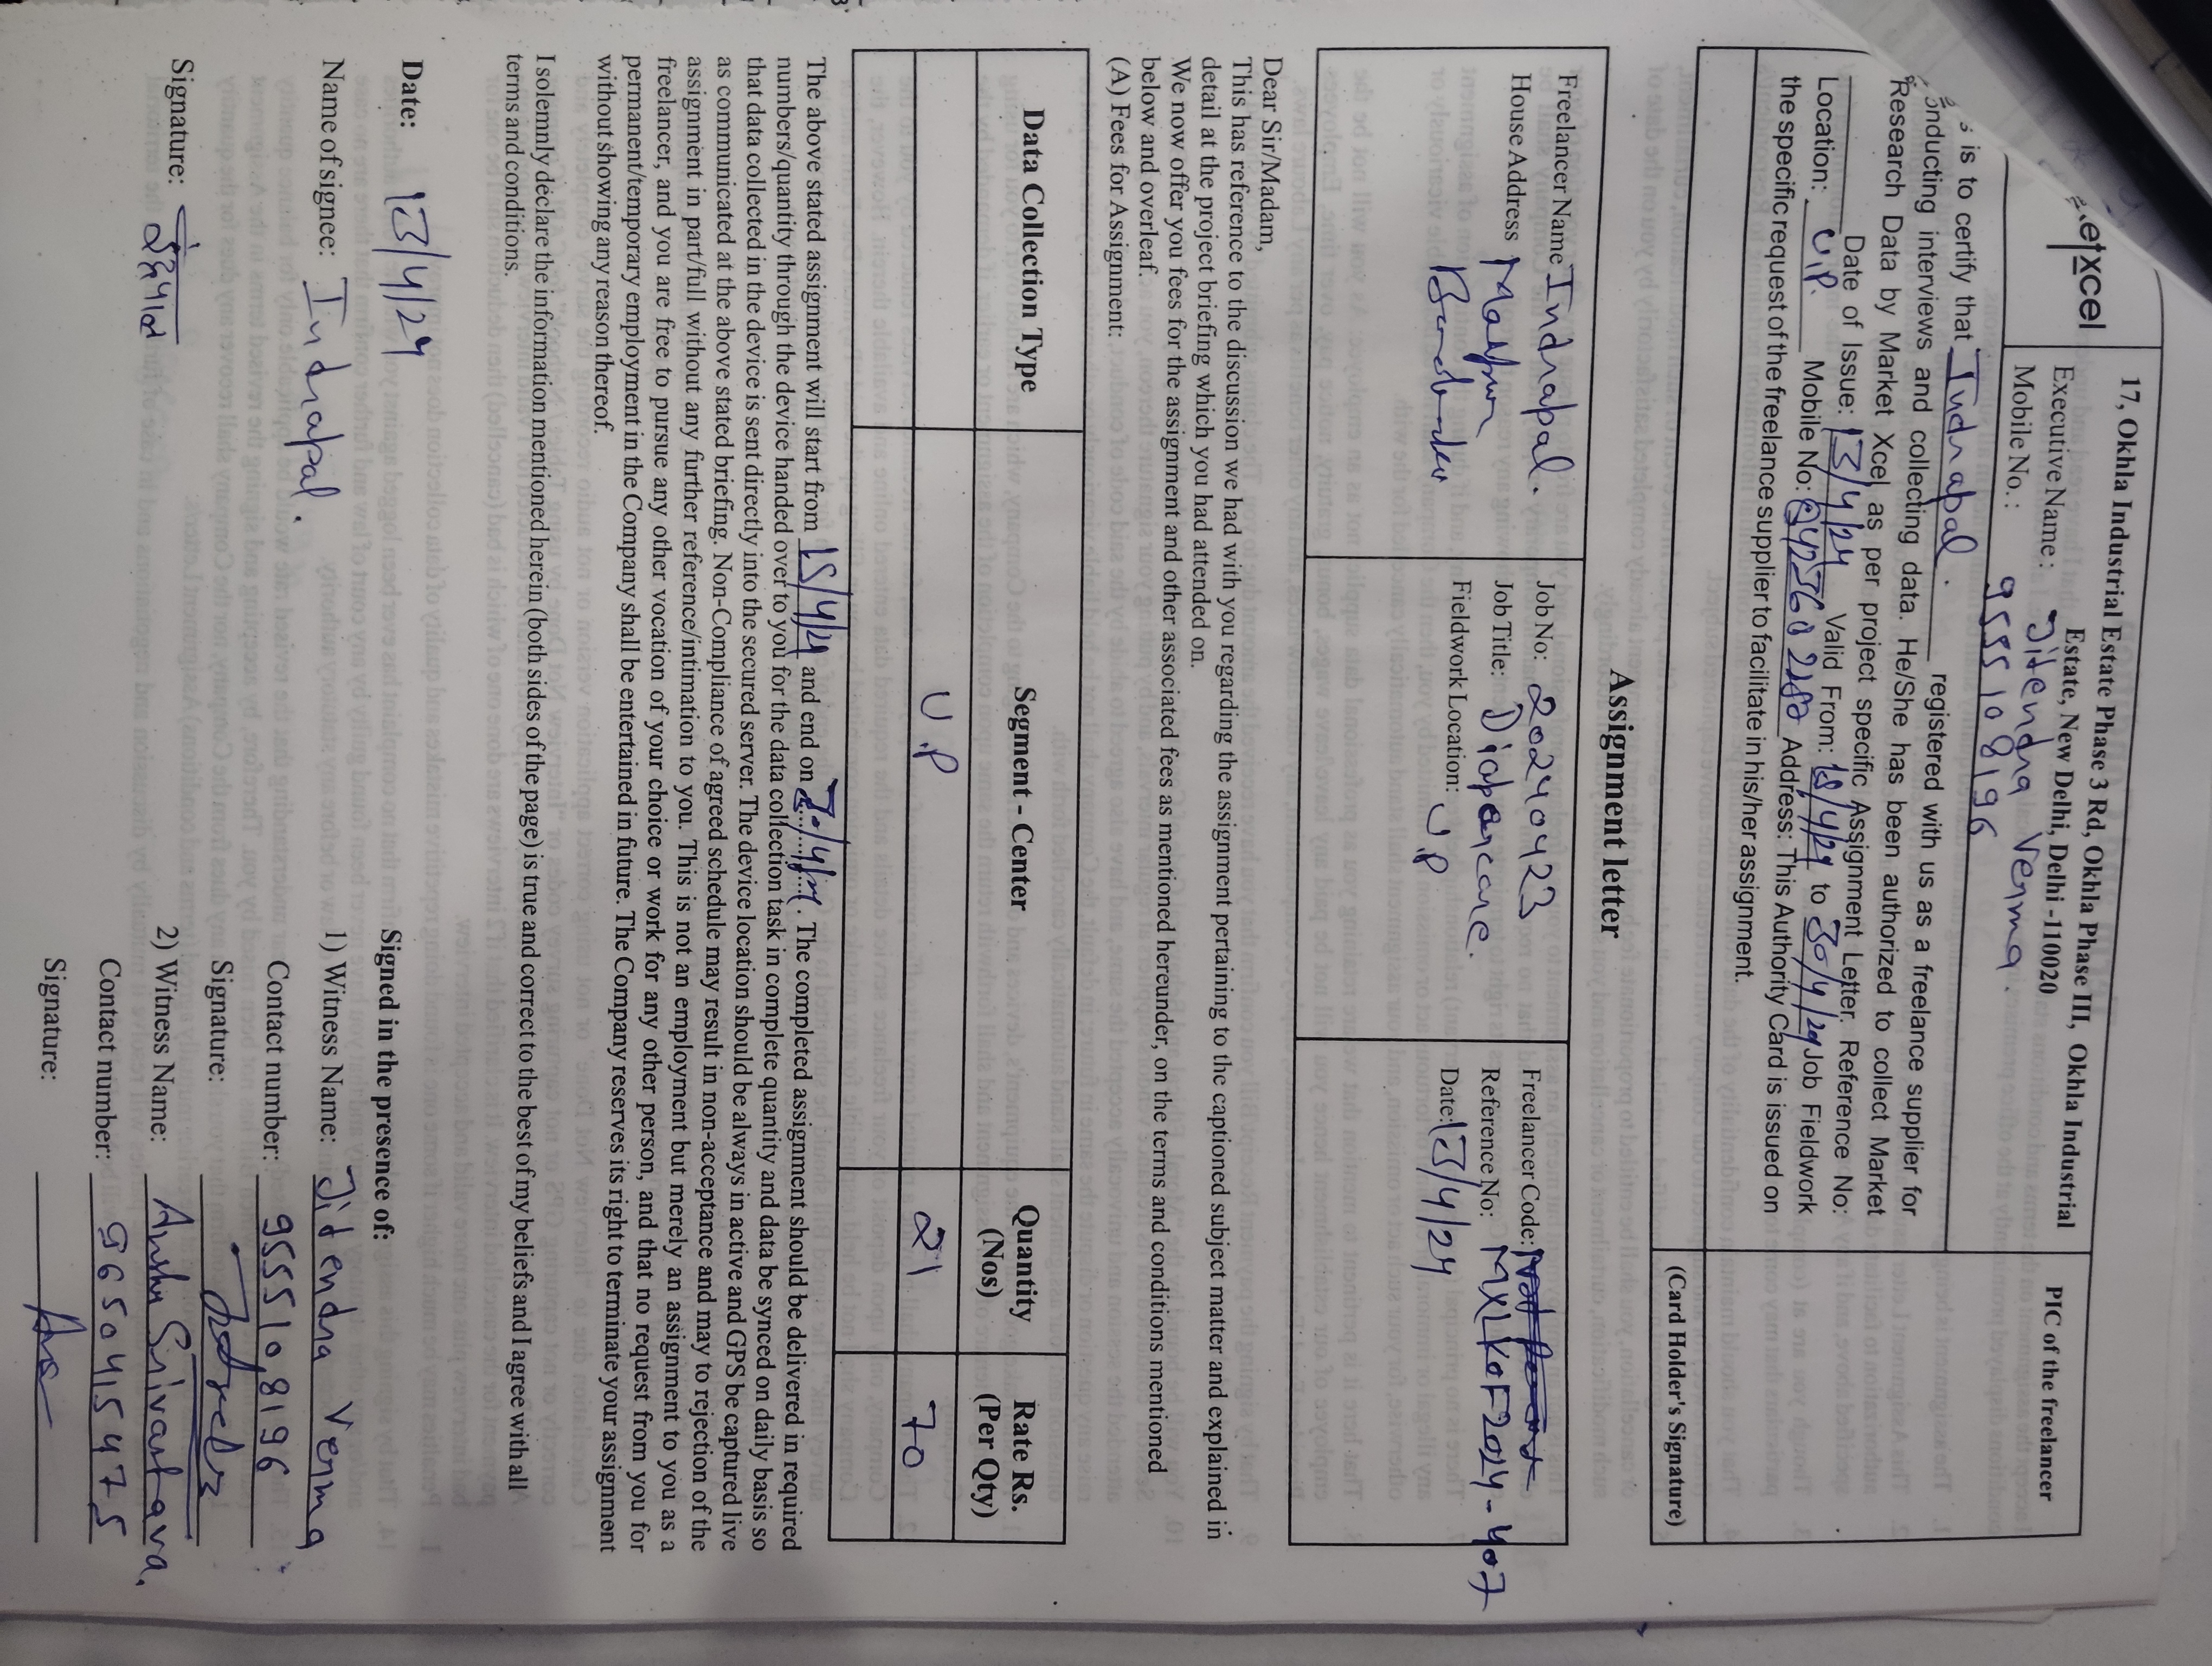 etxcel
17, Okhla Industrial Estate Phase 3 Rd, Okhla Phase III, Okhla Industrial
Estate, New Delhi, Delhi -110020
Executive Name : Jitendra Verma.
Mobile No. : 9555108196
PIC of the freelancer
is to certify that Indrapal. registered with us as a freelance supplier for
onducting interviews and collecting data. He/She has been authorized to collect Market
Research Data by Market Xcel as per project specific Assignment Letter. Reference No:
Date of Issue: 13/4/24 Valid From: 15/4/24 to 30/4/24 Job Fieldwork
Location: U.P. Mobile No: Address: This Authority Card is issued on
the specific request of the freelance supplier to facilitate in his/her assignment.
(Card Holder's Signature)
Assignment letter
Freelancer Name Indrapal.
House Address
Job No: 20240423
Job Title: Diapercare.
Fieldwork Location: U.P
Freelancer Code:
Reference No: MXLKOF2024-407
Date: 13/4/24
Dear Sir/Madam,
This has reference to the discussion we had with you regarding the assignment pertaining to the captioned subject matter and explained in
detail at the project briefing which you had attended on.
We now offer you fees for the assignment and other associated fees as mentioned hereunder, on the terms and conditions mentioned
below and overleaf.
(A) Fees for Assignment:
Data Collection Type Segment - Center Quantity (Nos) Rate Rs. (Per Qty)
U.P 21 70
The above stated assignment will start from 15/4/24 and end on . The completed assignment should be delivered in required
numbers/quantity through the device handed over to you for the data collection task in complete quantity and data be synced on daily basis so
that data collected in the device is sent directly into the secured server. The device location should be always in active and GPS be captured live
as communicated at the above stated briefing. Non-Compliance of agreed schedule may result in non-acceptance and may to rejection of the
assignment in part/full without any further reference/intimation to you. This is not an employment but merely an assignment to you as a
freelancer, and you are free to pursue any other vocation of your choice or work for any other person, and that no request from you for
permanent/temporary employment in the Company shall be entertained in future. The Company reserves its right to terminate your assignment
without showing any reason thereof.
I solemnly declare the information mentioned herein (both sides of the page) is true and correct to the best of my beliefs and I agree with all
terms and conditions.
Date: 13/4/24
Name of signee: Indrapal.
Signature:
Signed in the presence of:
1) Witness Name: Jitendra Verma
Contact number: 9555108196
Signature:
2) Witness Name: Anshu Srivastava.
Contact number: 9650415475
Signature: